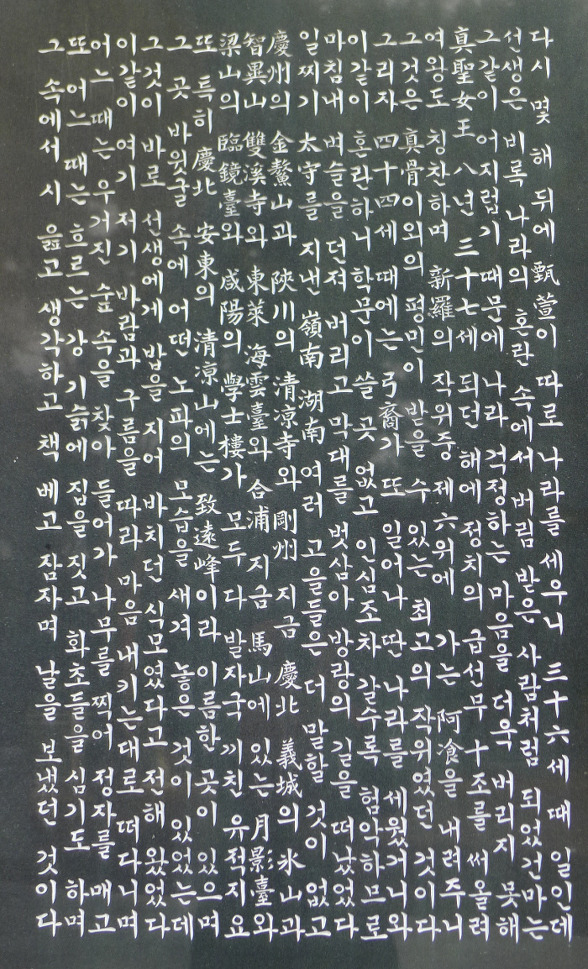 다시 몇 해 뒤에 甄萱이 따로 나라를 세우니 三十六세 때 일인데
선생은 비록 나라의 혼란 속에서 버림 받은 사람처럼 되었건마는
그같이 어지럽기 때문에 나라 걱정하는 마음을 더욱 버리지 못해
真聖女王 八년 三十七세 되던 해에 정치의 급선무 十조를 써 올려
여왕도 칭찬하며 新羅의 작위중 제 六위에 가는 阿飡을 내려주니
그것은 真骨이외의 평민이 받을 수 있는 최고의 작위였던 것이다
그리자 四十四세 때에는 弓裔가 또 일어나 딴 나라를 세웠거니와
이같이 혼란하니 학문이 쓸 곳 없고 인심조차 갈수록 험악하므로
마침내 벼슬을 던져 버리고 막대를 벗삼아 방랑의 길을 떠났었다
일찌기 太守를 지낸 嶺南 湖南 여러 고을들은 더 말할 것이 없고
慶州의 金鰲山과 陜川의 清凉寺와 剛州 지금 慶北 義城의 氷山과
智異山 雙溪寺와 東萊 海雲臺와 合浦 지금 馬山에 있는 月影臺와
梁山의 臨鏡臺와 咸陽의 學士樓가 모두 다 발자국 끼친 유적지요
또 특히 慶北 安東의 清凉山에는 致遠峰이라 이름한 곳이 있으며
그 곳 바윗굴 속에 어떤 노파의 모습을 새겨 놓은 것이 있었는데
그것이 바로 선생에게 밥을 지어 바치던 식모였다고 전해 왔었다
이같이 여기 저기 바람과 구름을 따라 마음 내키는대로 떠다니며
어느 때는 우거진 숲 속을 찾아 들어가 나무를 찍어 정자를 매고
또 어느 때는 흐르는 강 기슭에 집을 짓고 화초들을 심기도 하며
그 속에서 시 읊고 생각하고 책 베고 잠자며 날을 보냈던 것이다